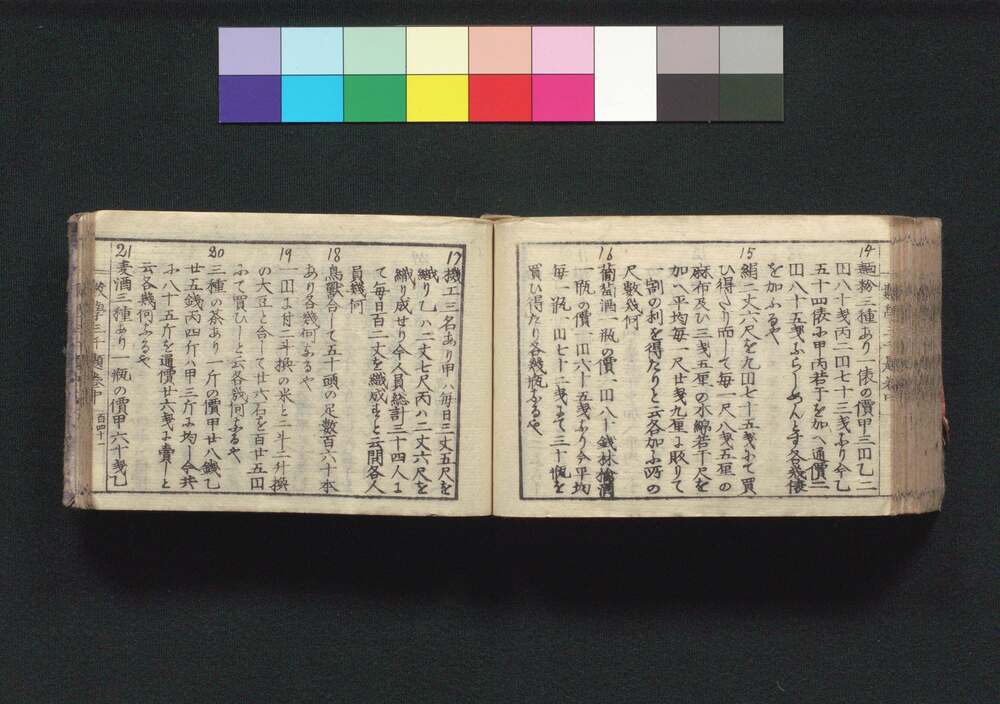 14
麺粉三種あり一俵の價甲三円乙二
円八十戔丙二円七十三戔なり今乙
五十四俵に甲丙若干を加へ通價二
円八十五戔ならしめんとす各幾俵
を加ふるや
15
絹二丈六尺を九円七十五戔にて買
ひ得たり而して毎一尺八戔五厘の
麻布及ひ三戔五厘の水綿若干尺を
加へ平均毎一尺廿戔九厘に販りて
一割の利を得たりと云各加ふ所の
尺數幾何
16
葡萄酒一瓶の價一円八十錢林檎酒
一瓶の價一円六十五戔なり今平均
毎一瓶一円七十二戔にて三十瓶を
買ひ得たり各幾瓶なるや
17
機工三名あり甲ハ毎日三丈五尺を
織り乙ハ二丈七尺丙ハ二丈六尺を
織り成せり今人員総計三十四人に
て毎日百二丈を織成すと云問各人
員幾何
18
鳥獣合して五十頭の足数百六十本
あり各幾何なるや
19
一円に付二斗換の米と三斗三升換
の大豆と合して廿六石を百廿五円
にて買ひしと云各幾何なるや
20
三種の茶あり一斤の價甲廿八錢乙
廿五錢丙四斤ハ甲三斤に均し今共
に八十五斤を通價廿六戔に賣しと
云各幾何なるや
21
麦酒三種あり一瓶の價甲六十戔乙
數學三千題巻中
百四十一